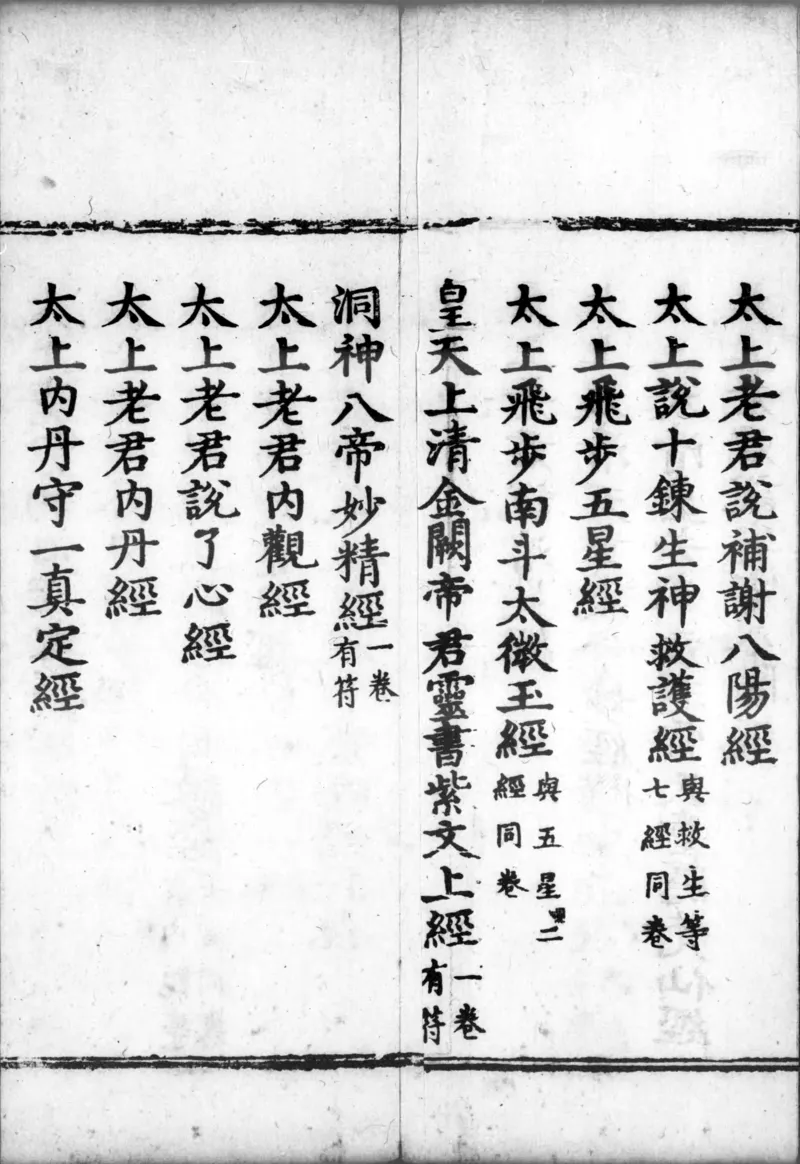 太上老君說補謝八陽經
太上說十鍊生神救護經與救生等七經同卷
太上飛步五星經
太上飛步南斗太微玉經與五星二經同卷
皇天上清金闕帝君靈書紫文上經一卷有符
洞神八帝妙精經一卷有符
太上老君內觀經
太上老君說了心經
太上老君內丹經
太上內丹守一真定經